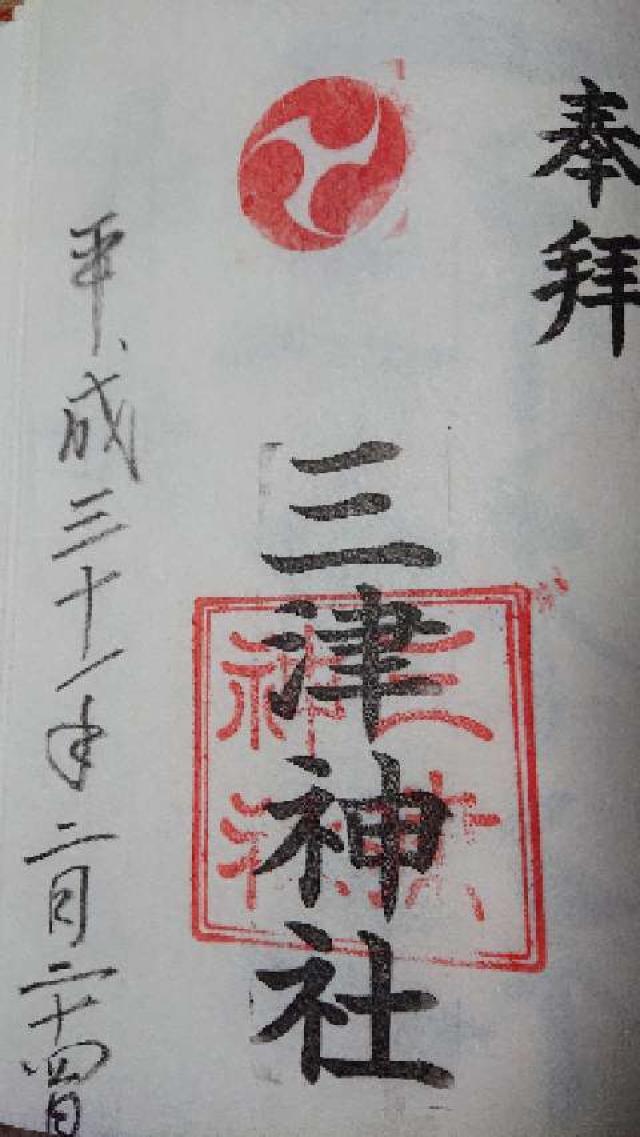 奉拝
三津神社
平成三十一年二月二十四日